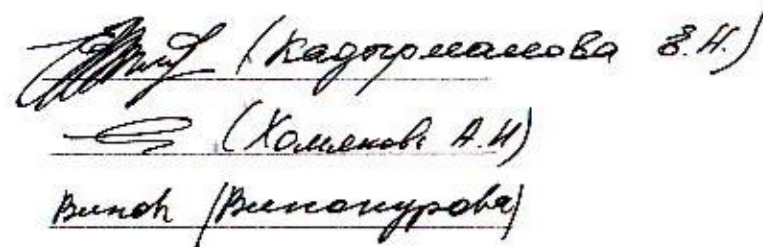 (Кадырмаева Е.Н.)
(Хомяков А.И)
Винок (Винокурова)